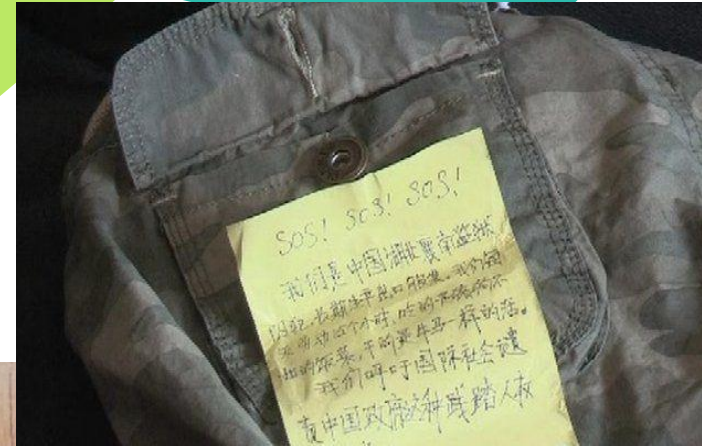 SOS! SOS! SOS!
我们是中国湖北襄南监狱
囚犯，长期生产出口服装，我们每
天劳动15个小时，吃的
的饭菜，干的是牛马一样的活。
我们呼吁国际社会谴
责中国政府这种践踏人权